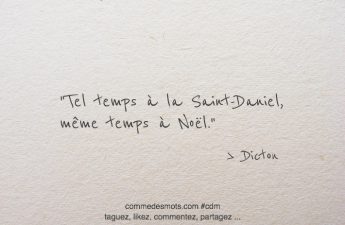 "Tel temps à la Saint-Daniel,
même temps à Noël."
> Dicton
commedesmots.com #cdm
taguez, likez, commentez, partagez ...